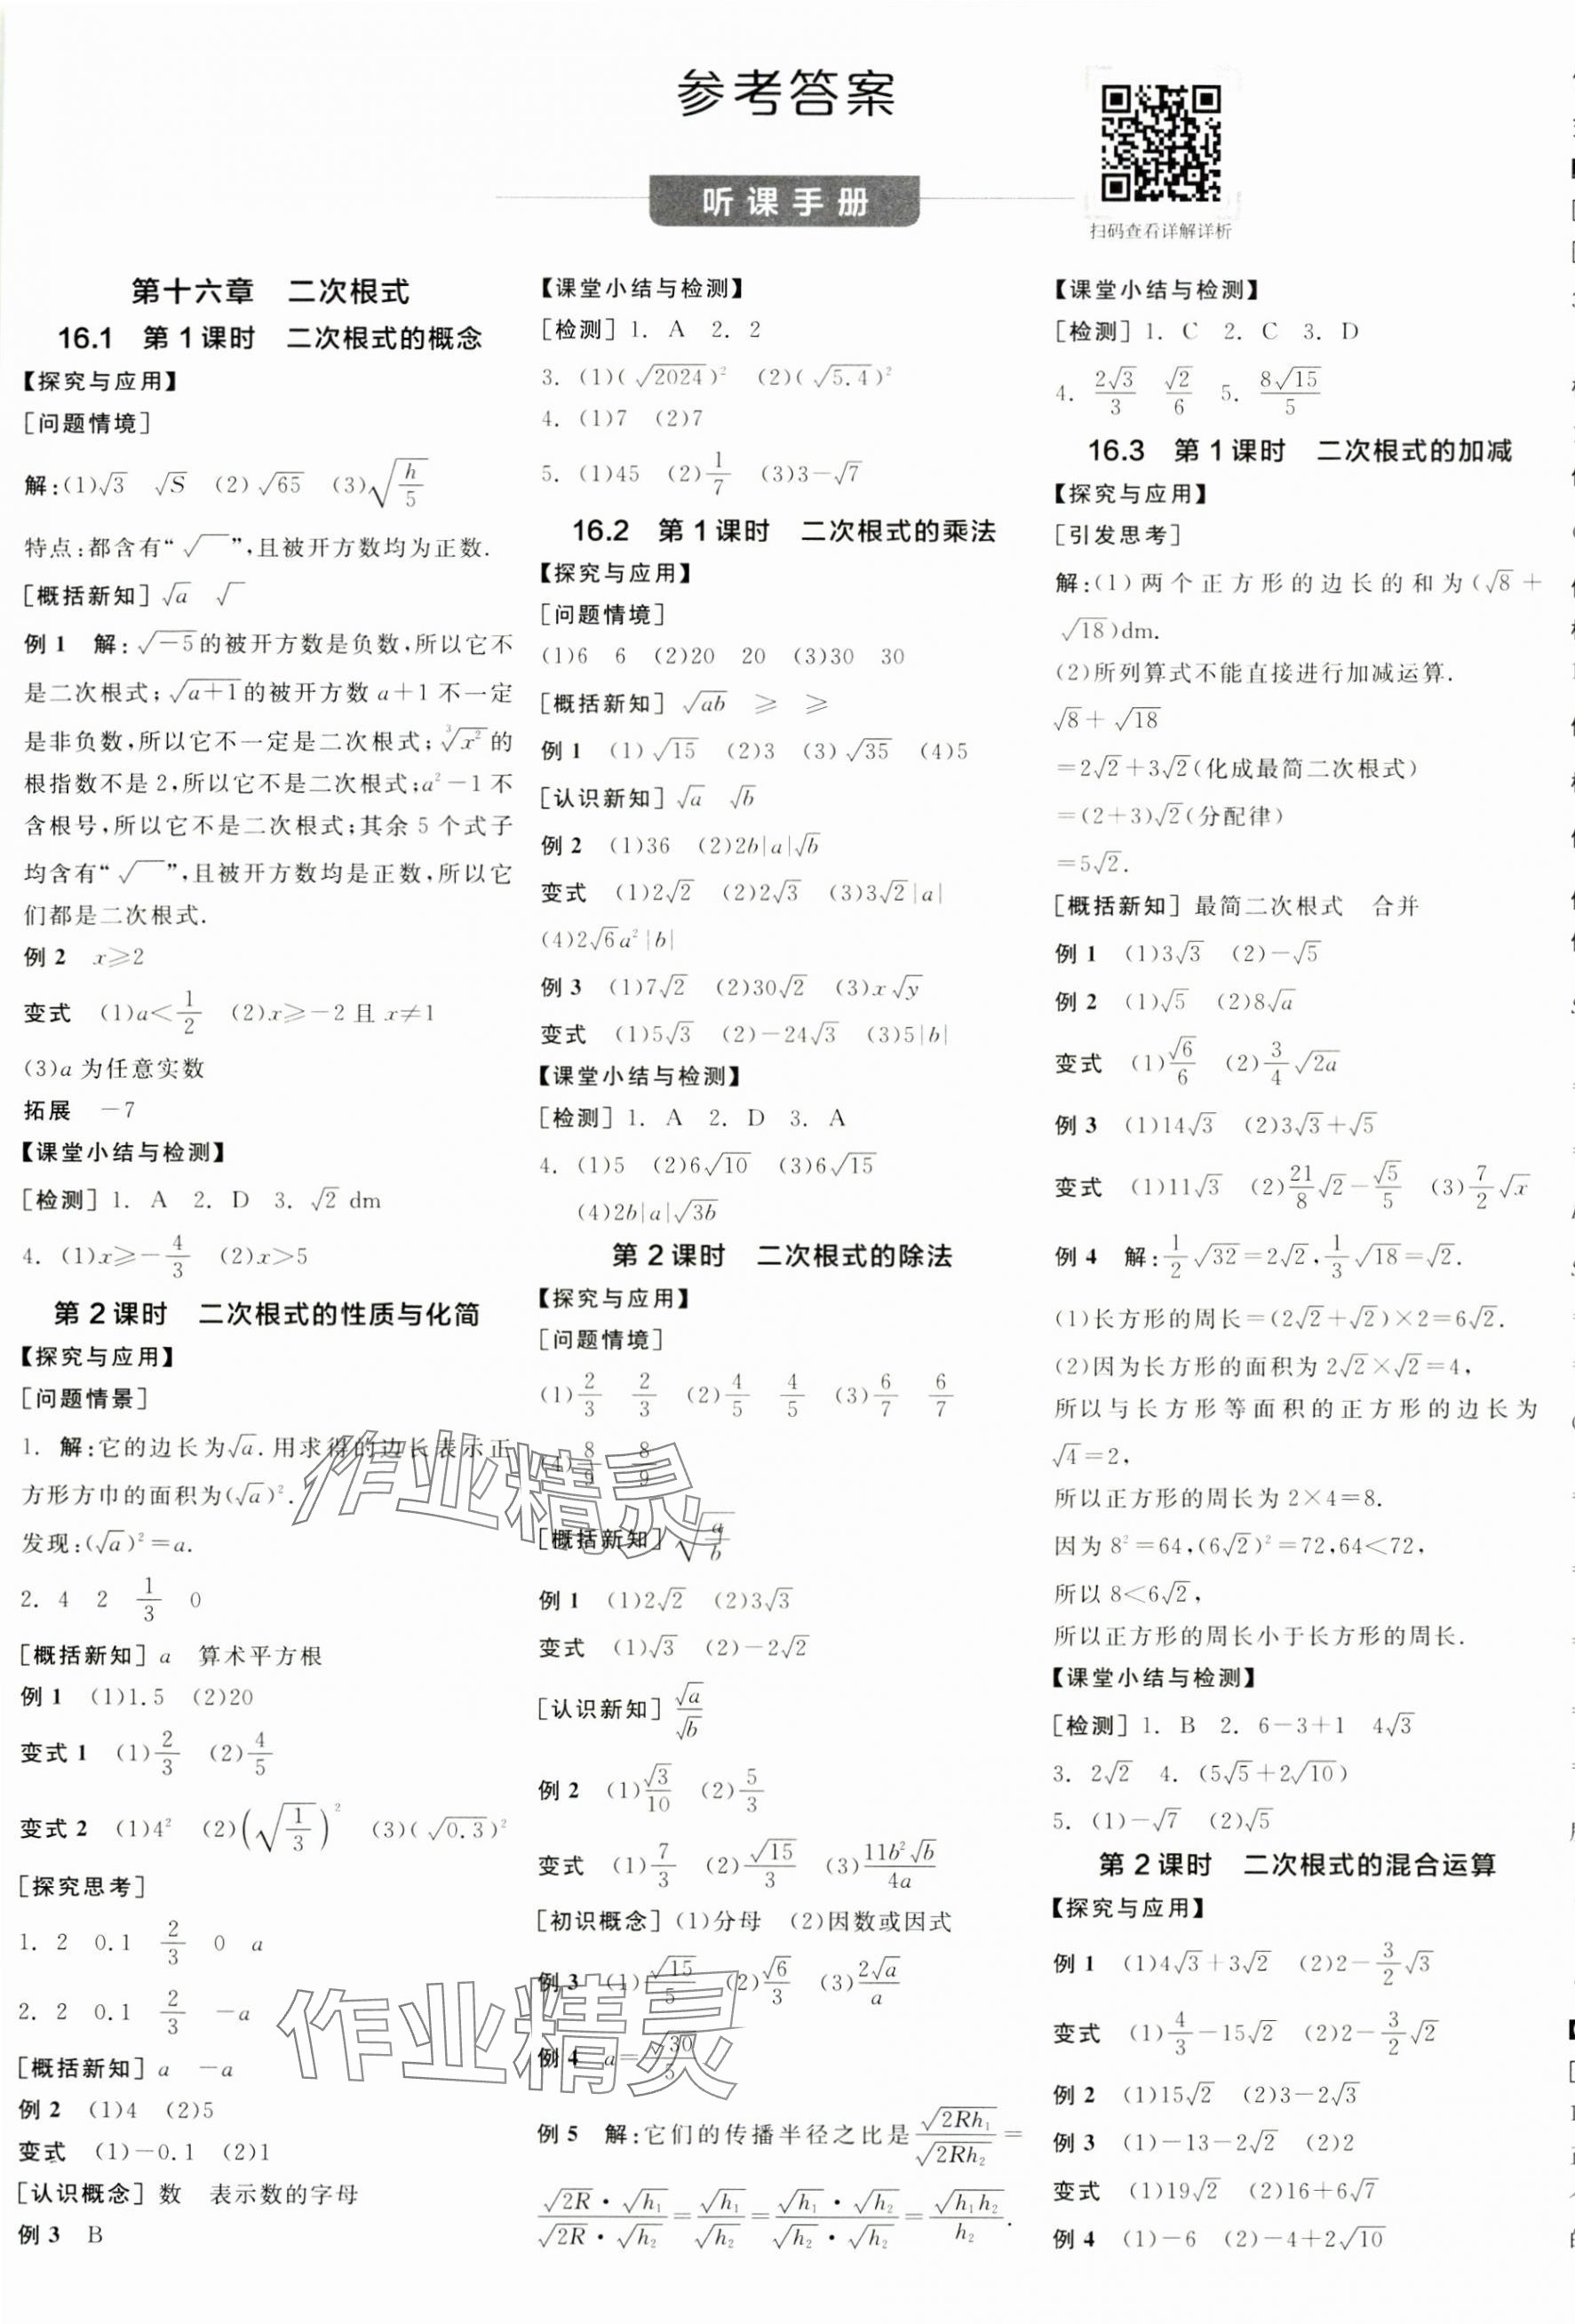 参考答案
听课手册
扫码查看详解详析
第十六章 二次根式
16.1 第1课时 二次根式的概念
【探究与应用】
[问题情境]
解:(1)√3 √S (2)√65 (3)√(h/5)
特点:都含有“√ ”,且被开方数均为正数.
[概括新知] √a √
例1 解:√(-5)的被开方数是负数,所以它不
是二次根式;√(a+1)的被开方数a+1不一定
是非负数,所以它不一定是二次根式;³√(x²)的
根指数不是2,所以它不是二次根式;a²-1不
含根号,所以它不是二次根式;其余5个式子
均含有“√ ”,且被开方数均是正数,所以它
们都是二次根式.
例2 x≥2
变式 (1)a<1/2 (2)x≥-2且x≠1
(3)a为任意实数
拓展 -7
【课堂小结与检测】
[检测] 1. A 2. D 3. √2 dm
4. (1)x≥-4/3 (2)x>5
第2课时 二次根式的性质与化简
【探究与应用】
[问题情景]
1. 解:它的边长为√a.用求得的边长表示正
方形方巾的面积为(√a)².
发现:(√a)²=a.
2. 4 2 1/3 0
[概括新知] a 算术平方根
例1 (1)1.5 (2)20
变式1 (1)2/3 (2)4/5
变式2 (1)4² (2)(√(1/3))² (3)(√0.3)²
[探究思考]
1. 2 0.1 2/3 0 a
2. 2 0.1 2/3 -a
[概括新知] a -a
例2 (1)4 (2)5
变式 (1)-0.1 (2)1
[认识概念] 数 表示数的字母
例3 B
【课堂小结与检测】
[检测] 1. A 2. 2
3. (1)(√2024)² (2)(√5.4)²
4. (1)7 (2)7
5. (1)45 (2)1/7 (3)3-√7
16.2 第1课时 二次根式的乘法
【探究与应用】
[问题情境]
(1)6 6 (2)20 20 (3)30 30
[概括新知] √ab ≥ ≥
例1 (1)√15 (2)3 (3)√35 (4)5
[认识新知] √a √b
例2 (1)36 (2)2b|a|√b
变式 (1)2√2 (2)2√3 (3)3√2|a|
(4)2√6a²|b|
例3 (1)7√2 (2)30√2 (3)x√y
变式 (1)5√3 (2)-24√3 (3)5|b|
【课堂小结与检测】
[检测] 1. A 2. D 3. A
4. (1)5 (2)6√10 (3)6√15
(4)2b|a|√3b
第2课时 二次根式的除法
【探究与应用】
[问题情境]
(1)2/3 2/3 (2)4/5 4/5 (3)6/7 6/7
(4)8/9 8/9
[概括新知] √(a/b)
例1 (1)2√2 (2)3√3
变式 (1)√3 (2)-2√2
[认识新知] √a/√b
例2 (1)√3/10 (2)5/3
变式 (1)7/3 (2)√15/3 (3)11b²√b/4a
[初识概念] (1)分母 (2)因数或因式
例3 (1)√15/5 (2)√6/3 (3)2√a/a
例4 a=√30/5
例5 解:它们的传播半径之比是√(2Rh₁)/√(2Rh₂)=
(√2R·√h₁)/(√2R·√h₂)=√h₁/√h₂=(√h₁·√h₂)/(√h₂·√h₂)=√(h₁h₂)/h₂.
【课堂小结与检测】
[检测] 1. C 2. C 3. D
4. 2√3/3 √2/6 5. 8√15/5
16.3 第1课时 二次根式的加减
【探究与应用】
[引发思考]
解:(1)两个正方形的边长的和为(√8+
√18)dm.
(2)所列算式不能直接进行加减运算.
√8+√18
=2√2+3√2(化成最简二次根式)
=(2+3)√2(分配律)
=5√2.
[概括新知] 最简二次根式 合并
例1 (1)3√3 (2)-√5
例2 (1)√5 (2)8√a
变式 (1)√6/6 (2)3/4√2a
例3 (1)14√3 (2)3√3+√5
变式 (1)11√3 (2)21/8√2-√5/5 (3)7/2√x
例4 解:1/2√32=2√2,1/3√18=√2.
(1)长方形的周长=(2√2+√2)×2=6√2.
(2)因为长方形的面积为2√2×√2=4,
所以与长方形等面积的正方形的边长为
√4=2,
所以正方形的周长为2×4=8.
因为8²=64,(6√2)²=72,64<72,
所以8<6√2,
所以正方形的周长小于长方形的周长.
【课堂小结与检测】
[检测] 1. B 2. 6-3+1 4√3
3. 2√2 4. (5√5+2√10)
5. (1)-√7 (2)√5
第2课时 二次根式的混合运算
【探究与应用】
例1 (1)4√3+3√2 (2)2-3/2√3
变式 (1)4/3-15√2 (2)2-3/2√2
例2 (1)15√2 (2)3-2√3
例3 (1)-13-2√2 (2)2
变式 (1)19√2 (2)16+6√7
例4 (1)-6 (2)-4+2√10
作业精灵
作业精灵